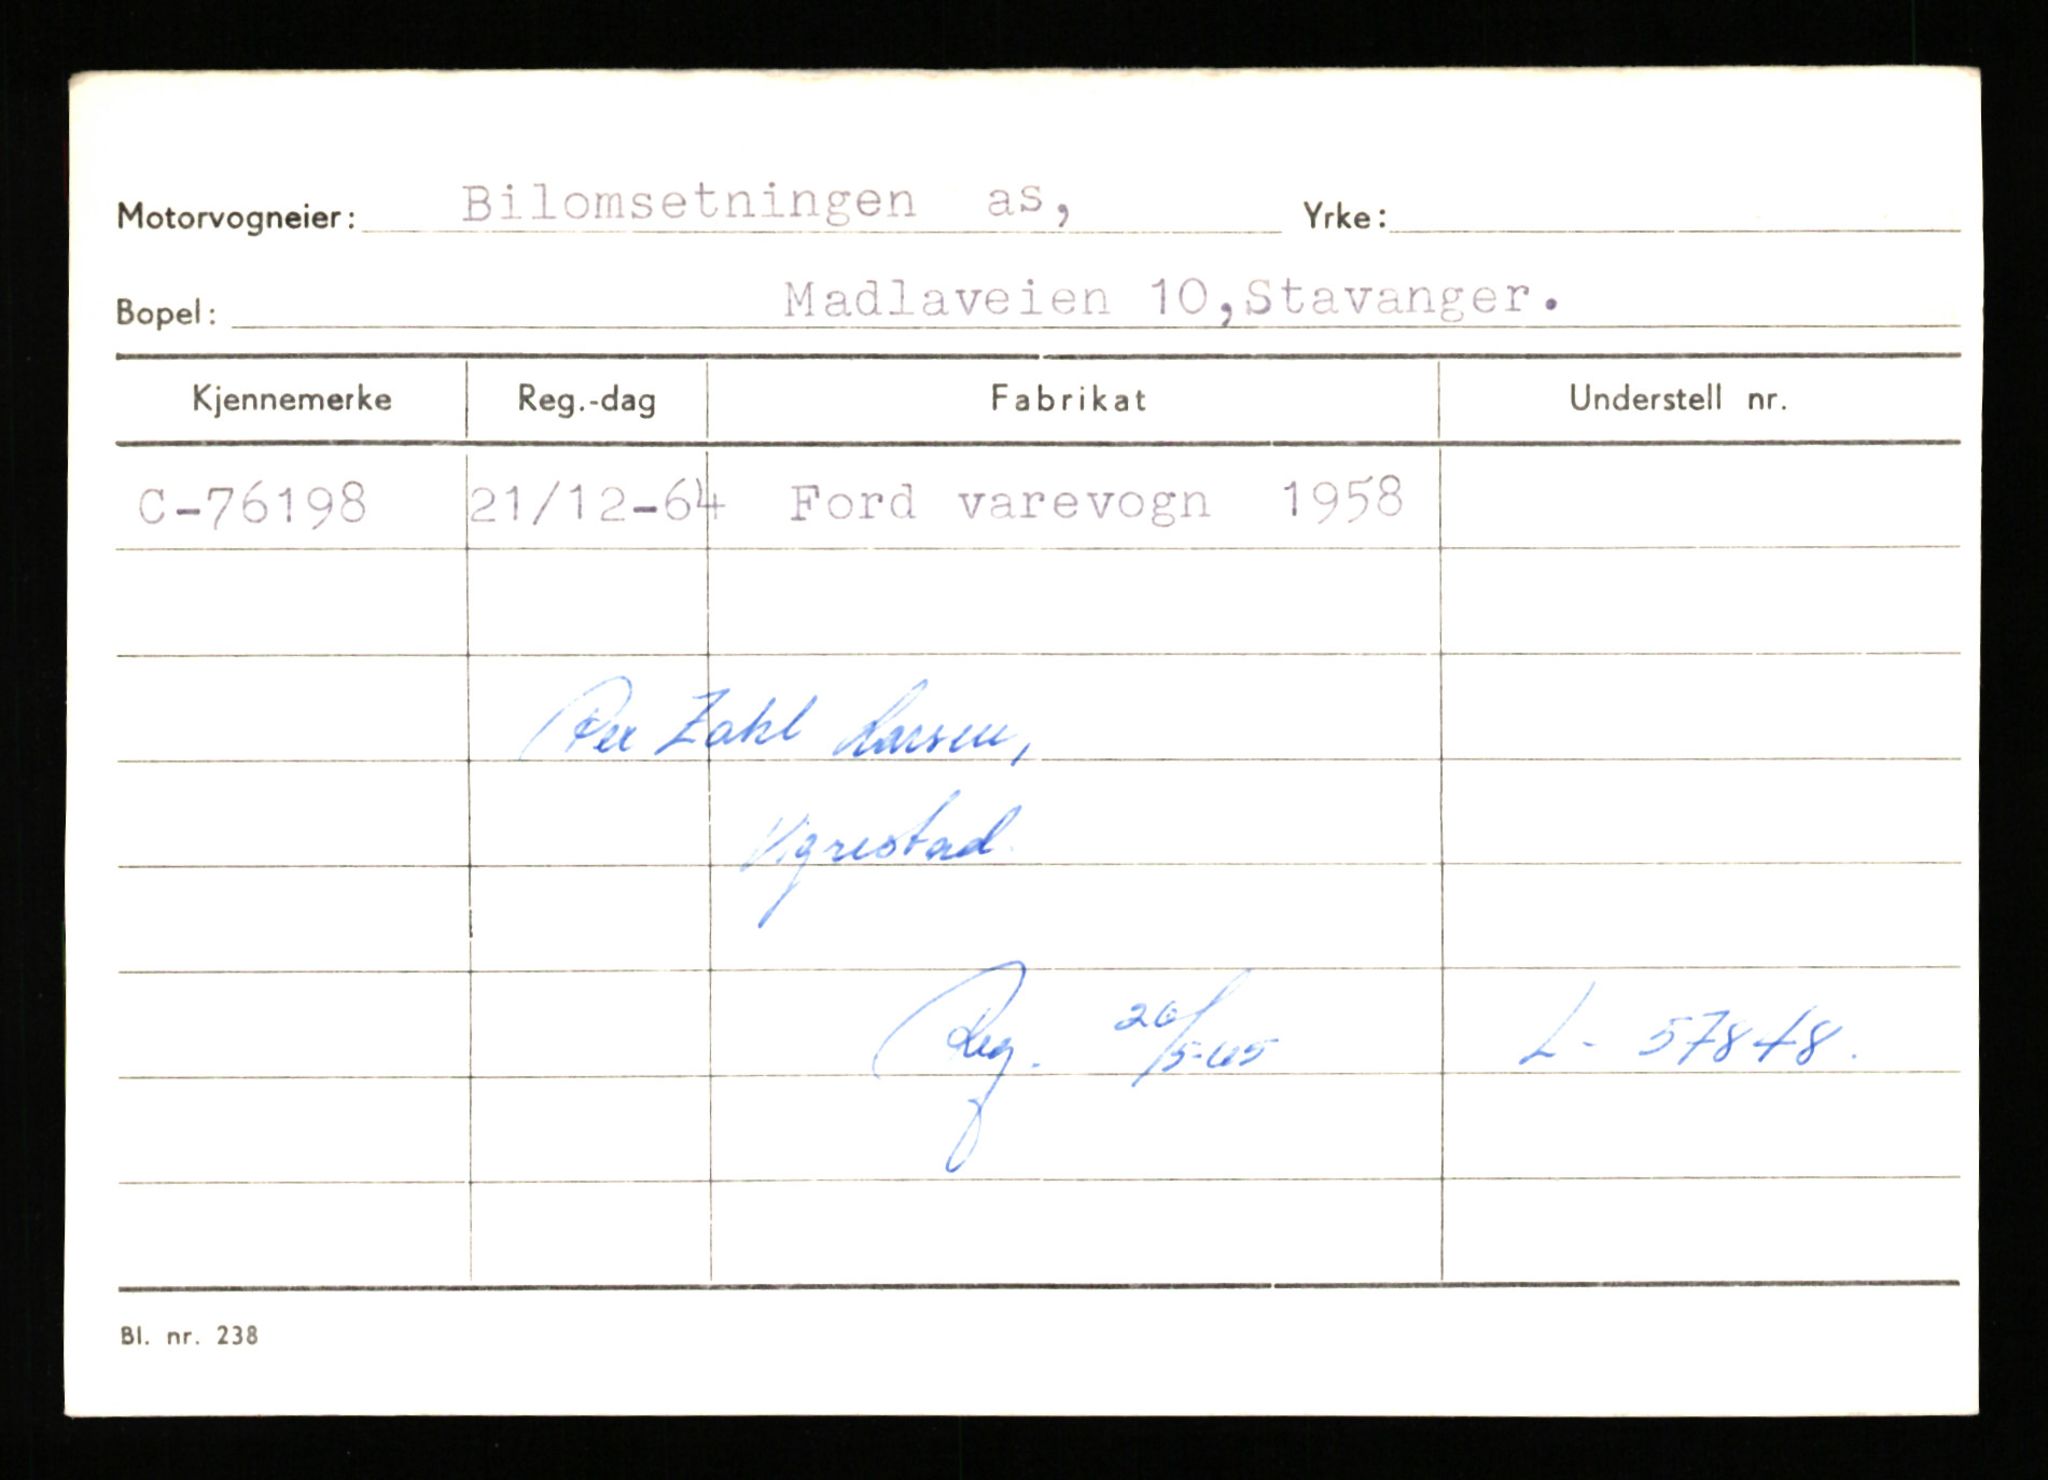 Motorvogneier: Bilomsetningen as, Yrke:
Bopel: Madlaveien 10, Stavanger.
Kjennemerke Reg.-dag Fabrikat Understell nr.
C-76198 21/12-64 Ford varevogn 1958
Per Zahl Larsen,
Vigrestad.
Reg. 26/5-65 L- 57848.
Bl. nr. 238